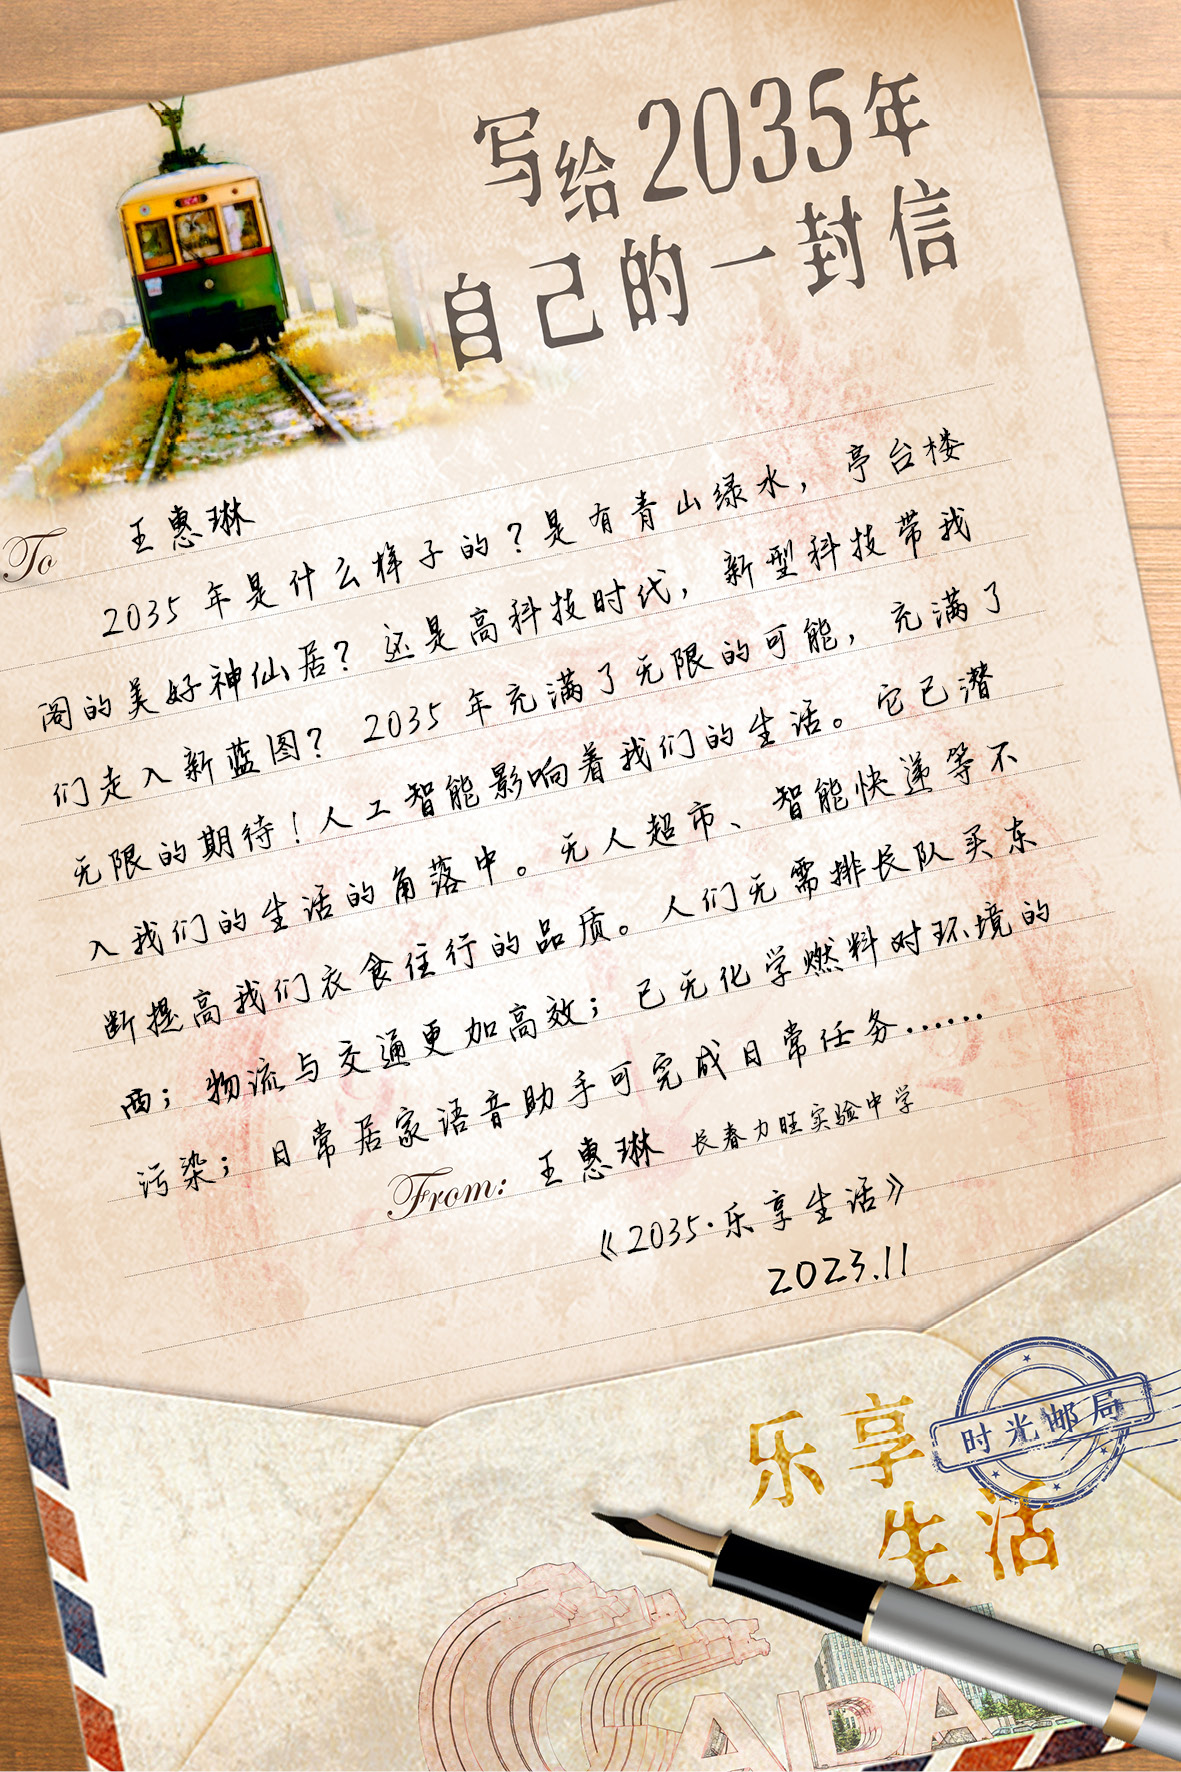 写给2035年
自己的一封信
To 王惠琳
2035年是什么样子的?是有青山绿水，亭台楼
阁的美好神仙居?还是高科技时代，新型科技带我
们走入新蓝图? 2035年充满了无限的可能，充满了
无限的期待!人工智能影响着我们的生活。它已潜
入我们的生活的角落中。无人超市、智能快递等不
断提高我们衣食住行的品质。人们无需排长队买东
西；物流与交通更加高效；已无化学燃料对环境的
污染；日常居家语音助手可完成日常任务……
From: 王惠琳 长春力旺实验中学
《2035·乐享生活》
2023.11
时光邮局
乐享
生活
CAIDA